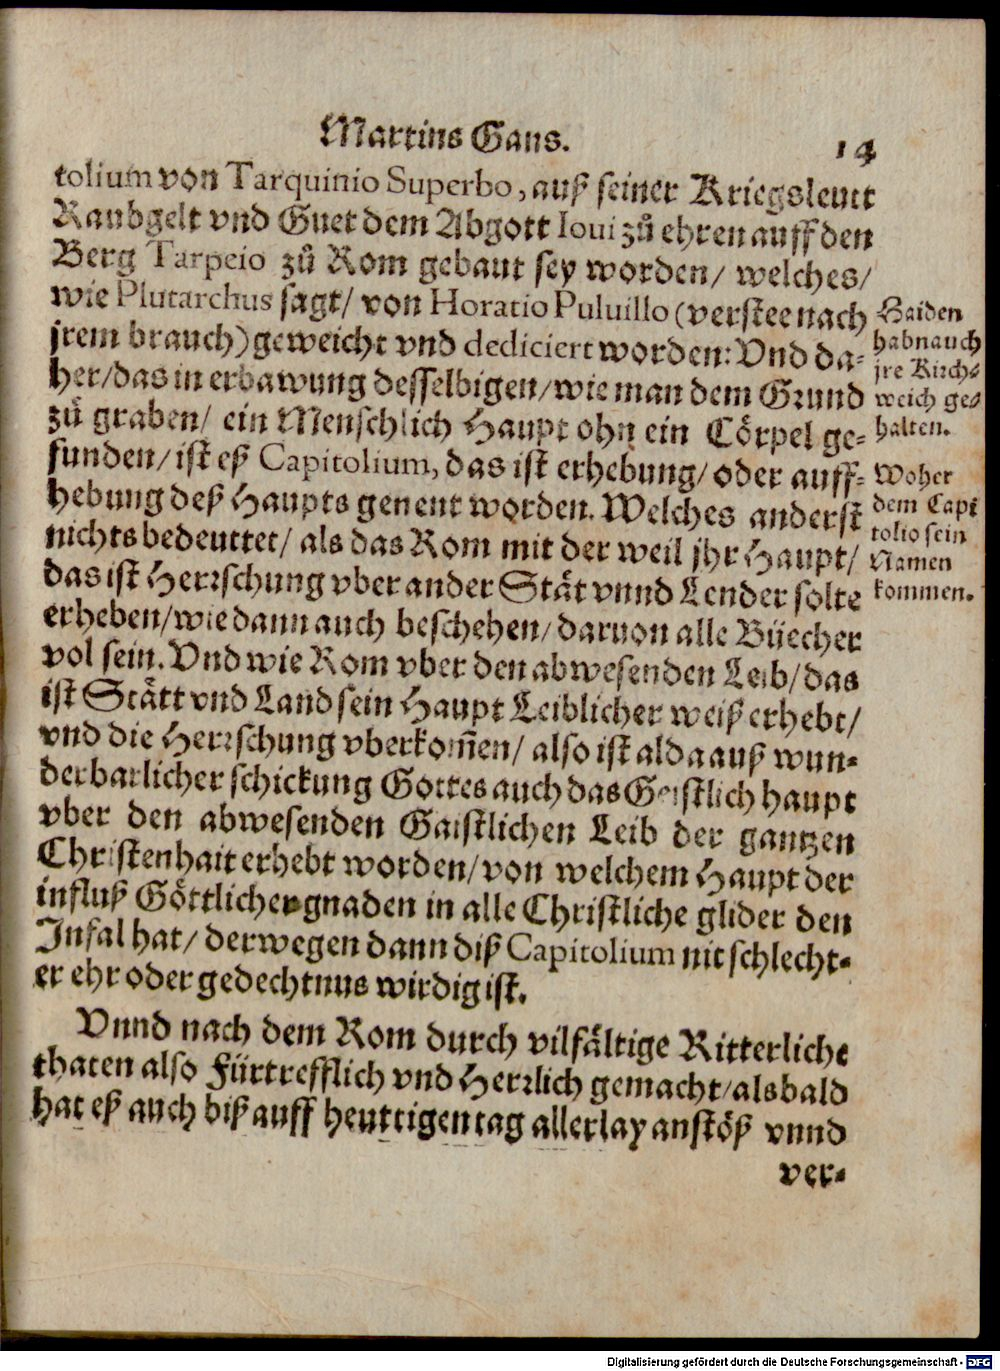 Martins Gans.
14
tolium von Tarquinio Superbo, auß seiner Kriegsleutt
Raubgelt vnd Guet dem Abgott Ioui zů ehren auff den
Berg Tarpeio zů Rom gebaut sey worden/ welches/
wie Plutarchus sagt/ von Horatio Puluillo (verstee nach
jrem brauch) geweicht vnd dediciert worden: Vnd da-
her/ das in erbawung desselbigen/ wie man dem Grund
zů graben/ ein Menschlich Haupt ohn ein Cörpel ge-
funden/ ist eß Capitolium, das ist erhebung/ oder auff-
hebung deß Haupts genent worden. Welches anderst
nichts bedeuttet/ als das Rom mit der weil jhr Haupt/
das ist Herrschung vber ander Stät vnnd Lender solte
erheben/ wie dann auch beschehen/ daruon alle Büecher
vol sein. Vnd wie Rom vber den abwesenden Leib/ das
ist Stätt vnd Land sein Haupt Leiblicher weiß erhebt/
vnd die Herrschung vberkom̄en/ also ist alda auß wun-
derbarlicher schickung Gottes auch das Geistlich haupt
vber den abwesenden Gaistlichen Leib der gantzen
Christenhait erhebt worden/ von welchem Haupt der
influß Göttlicher gnaden in alle Christliche glider den
Infal hat/ derwegen dann diß Capitolium nit schlecht-
er ehr oder gedechtnus wirdig ist.
Vnnd nach dem Rom durch vilfältige Ritterliche
thaten also Fürtrefflich vnd Herrlich gemacht/ alsbald
hat eß auch biß auff heuttigen tag allerlay anstöß vnnd
ver-
Haiden
habn auch
jre Kirch-
weich ge-
halten.
Woher
dem Capi
tolio sein
Namen
kommen.
Digitalisierung gefördert durch die Deutsche Forschungsgemeinschaft - DFG